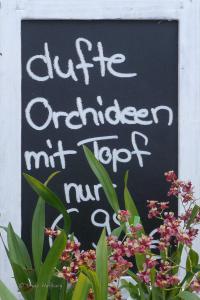 dufte
Orchideen
mit Topf
nur